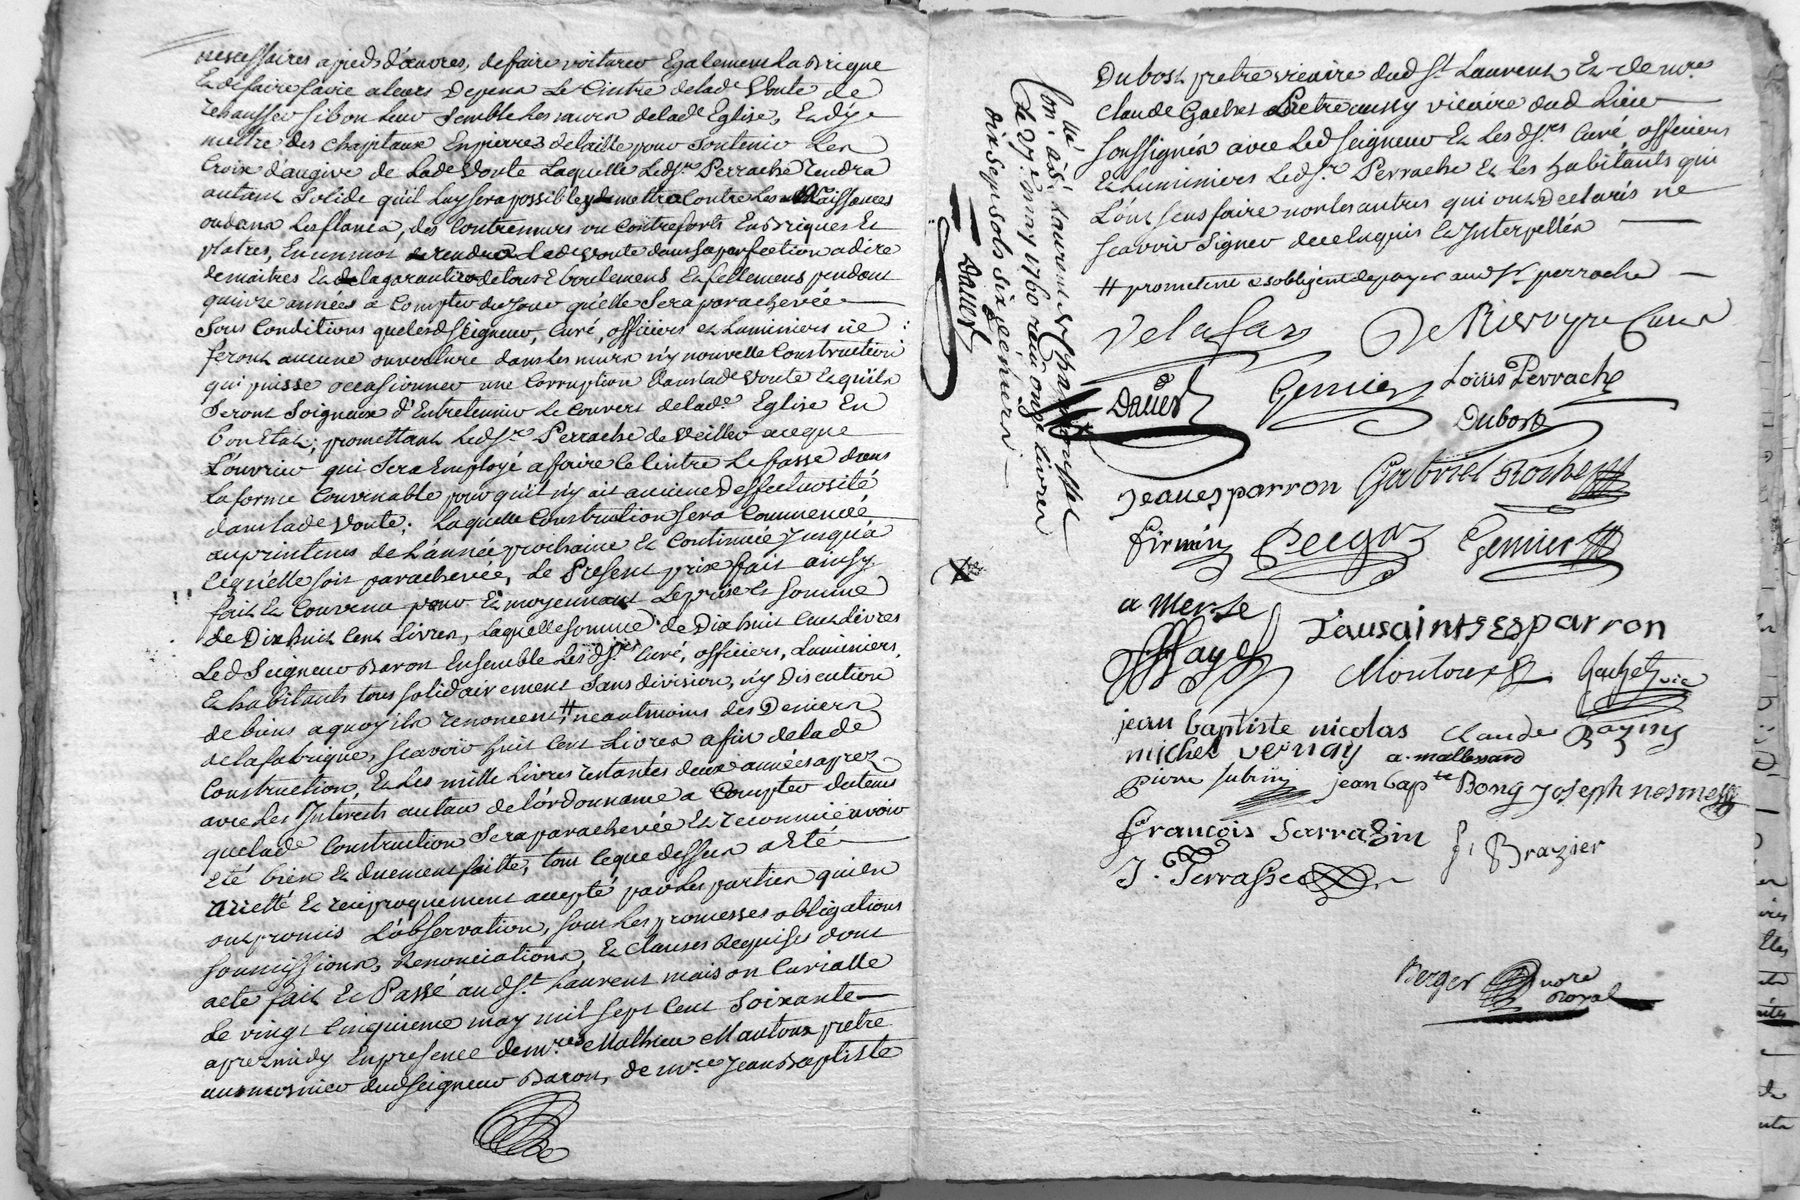 necessaires a pieds d'œuvres, de faire voiturer Egalement la Brique
Et de faire faire a leurs Depens Le Cintre de lade Voute de
rehausser si bon leur Semble les murs de lade Eglise, Et d'y
mettre des Chapitaux En pierres de taille pour Soutenir les
Croix d'augive de lade Voute Laquelle Led Sr. Perrache Rendra
autant Solide qu'il luy sera possible y mettra Contre les Naissances
ou dans les flancs, des Contremurs ou Contreforts En Briques Et
platres, En un mot de rendre lade Voute dans sa perfection a dire
de maitres Et de la garantir de tous Eboulements Et fellements pendant
quatre années a Compter du Jour qu'elle Sera parachevée
Sous Conditions que lesd Seigneur, Curé, officiers et Luminiers ne
feront aucune ouverture dans les murs n'y nouvelle Construction
qui puisse occasionner une Corruption dans lade Voute Et qu'ils
Seront Soigneux d'Entretenir Le Couvert de lade. Eglise En
bon Etat; promettant led Sr. Perrache de Veiller a ce que
L'ouvrier qui Sera Employé a faire le Cintre Le fasse dans
La forme Convenable pour qu'il n'y ait aucune Deffectuosité
dans lade Voute; Laquelle Construction sera Commencée
au printems de L'année prochaine Et Continuée Jusqu'a
ce qu'elle soit parachevée, Le Present prix fait ainsy
fait Et Convenu pour Et moyennant Le prix Et Somme
de Dix huit Cent Livres, Laquelle Somme de Dix huit Cent Livres
Led Seigneur Baron Ensemble Lesd Srs Curé, officiers, Luminiers,
Et habitants tous Solidairement Sans division, n'y Discution
de biens a quoy ils renoncent # neantmoins des Deniers
de la fabrique, scavoir huit Cent Livres a fin de lade
Construction, Et Les mille Livres restantes deux années aprez
avec Les Interests au taux de L'ordonnance a Compter du tems
que lade Construction Sera parachevée Et reconnue avoir
Eté bien Et duement faitte, tout ce que dessus a Eté
arretté Et reciproquement accepté par Les parties qui en
ont promis L'observation, sous Les promesses obligations
Soumissions, Renonciations, Et Clauses Requises dont
acte fait Et Passé aud St. Laurent maison Curialle
Le vingt Cinquieme may mil sept Cent Soixante
aprez midy En presence de mres Mathieu Montoux pretre
aumosnier dud Seigneur Baron, de mre Jean Baptiste
Dubost pretre vicaire dud St. Laurent Et de mre
Claude Gachet Pretre aussy vicaire dud Lieu
Soussignés avec led Seigneur Et Les dSrs Curé officiers
Et Luminiers Led Sr. Perrache Et Les habitants qui
L'ont sceus faire non les autres qui ont Declarés ne
Scavoir Signer de ce Enquis Et Interpellés
# promettent Et s'obligent de payer aud Sr perrache
Con.lé a St Laurent de Chamousset
Le 27e may 1760 reçu onze livres
dix sept sols six deniers
Dauer
Delafay De Rierroyre Curé
Dauer Gennier Louis Perrache
Dubost
Jean esparron Gabriel Roche
firmin Gennier
Tausaints Esparron
Montoux Gachet vic
jean baptiste nicolas Claude
michel vernay
pierre jean bapte Bong Joseph
françois Sarrazin f. Brazier
J. Terrasse
Berger nore
Royal